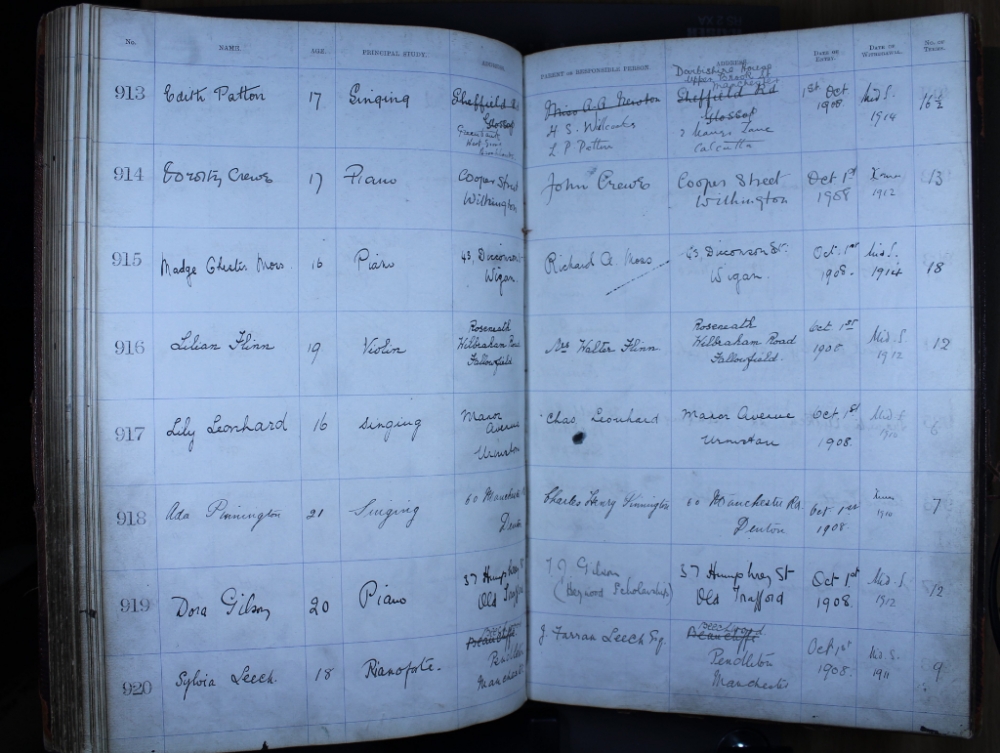 No. NAME. AGE. PRINCIPAL STUDY. ADDRESS. PARENT OR RESPONSIBLE PERSON. ADDRESS. DATE OF ENTRY. DATE OF WITHDRAWAL. NO. OF TERMS.
Derbishire House
Upper Brook St
Manchester
913 Edith Patton 17 Singing Sheffield Rd Miss A.A. Newton Sheffield Rd 1st Oct Mid S. 16½
Glossop H S. Willcocks Glossop 1908 1914
L P Patton Lane
Calcutta
914 Dorothy Crewe 17 Piano Cooper Street John Crewe Cooper Street Oct 1st Xmas 13
Withington Withington 1908 1912
915 Madge Chester Moss. 16 Piano 43, Dicconson Richard A. Moss 43, Dicconson St. Oct. 1st Mid S. 18
Wigan. Wigan. 1908. 1914
916 Lilian Flinn 19 Violin Roseneath Mrs Walter Flinn Roseneath Oct 1st Mid. S. 12
Wilbraham Road Wilbraham Road 1908 1912
Fallowfield Fallowfield.
917 Lily Leonhard 16 Singing Manor Chas Leonhard Manor Avenue Oct 1st Mid S 6
Avenue Urmston 1908. 1910
Urmston
918 Ada Pinnington 21 Singing 60 Manchester Charles Henry Pinnington 60 Manchester Rd Oct 1st Xmas 7
Denton Denton 1908. 1910
919 Dora Gilson 20 Piano 37 Humphrey St T J Gilson 37 Humphrey St Oct 1st Mid. S. 12
Old Trafford (Heywood Scholarship) Old Trafford 1908. 1912
920 Sylvia Leech. 18 Pianoforte. J Farran Leech Esq. Beechwood Oct 1st Mid. S. 9
Pendleton Pendleton 1908. 1911
Manchester Manchester